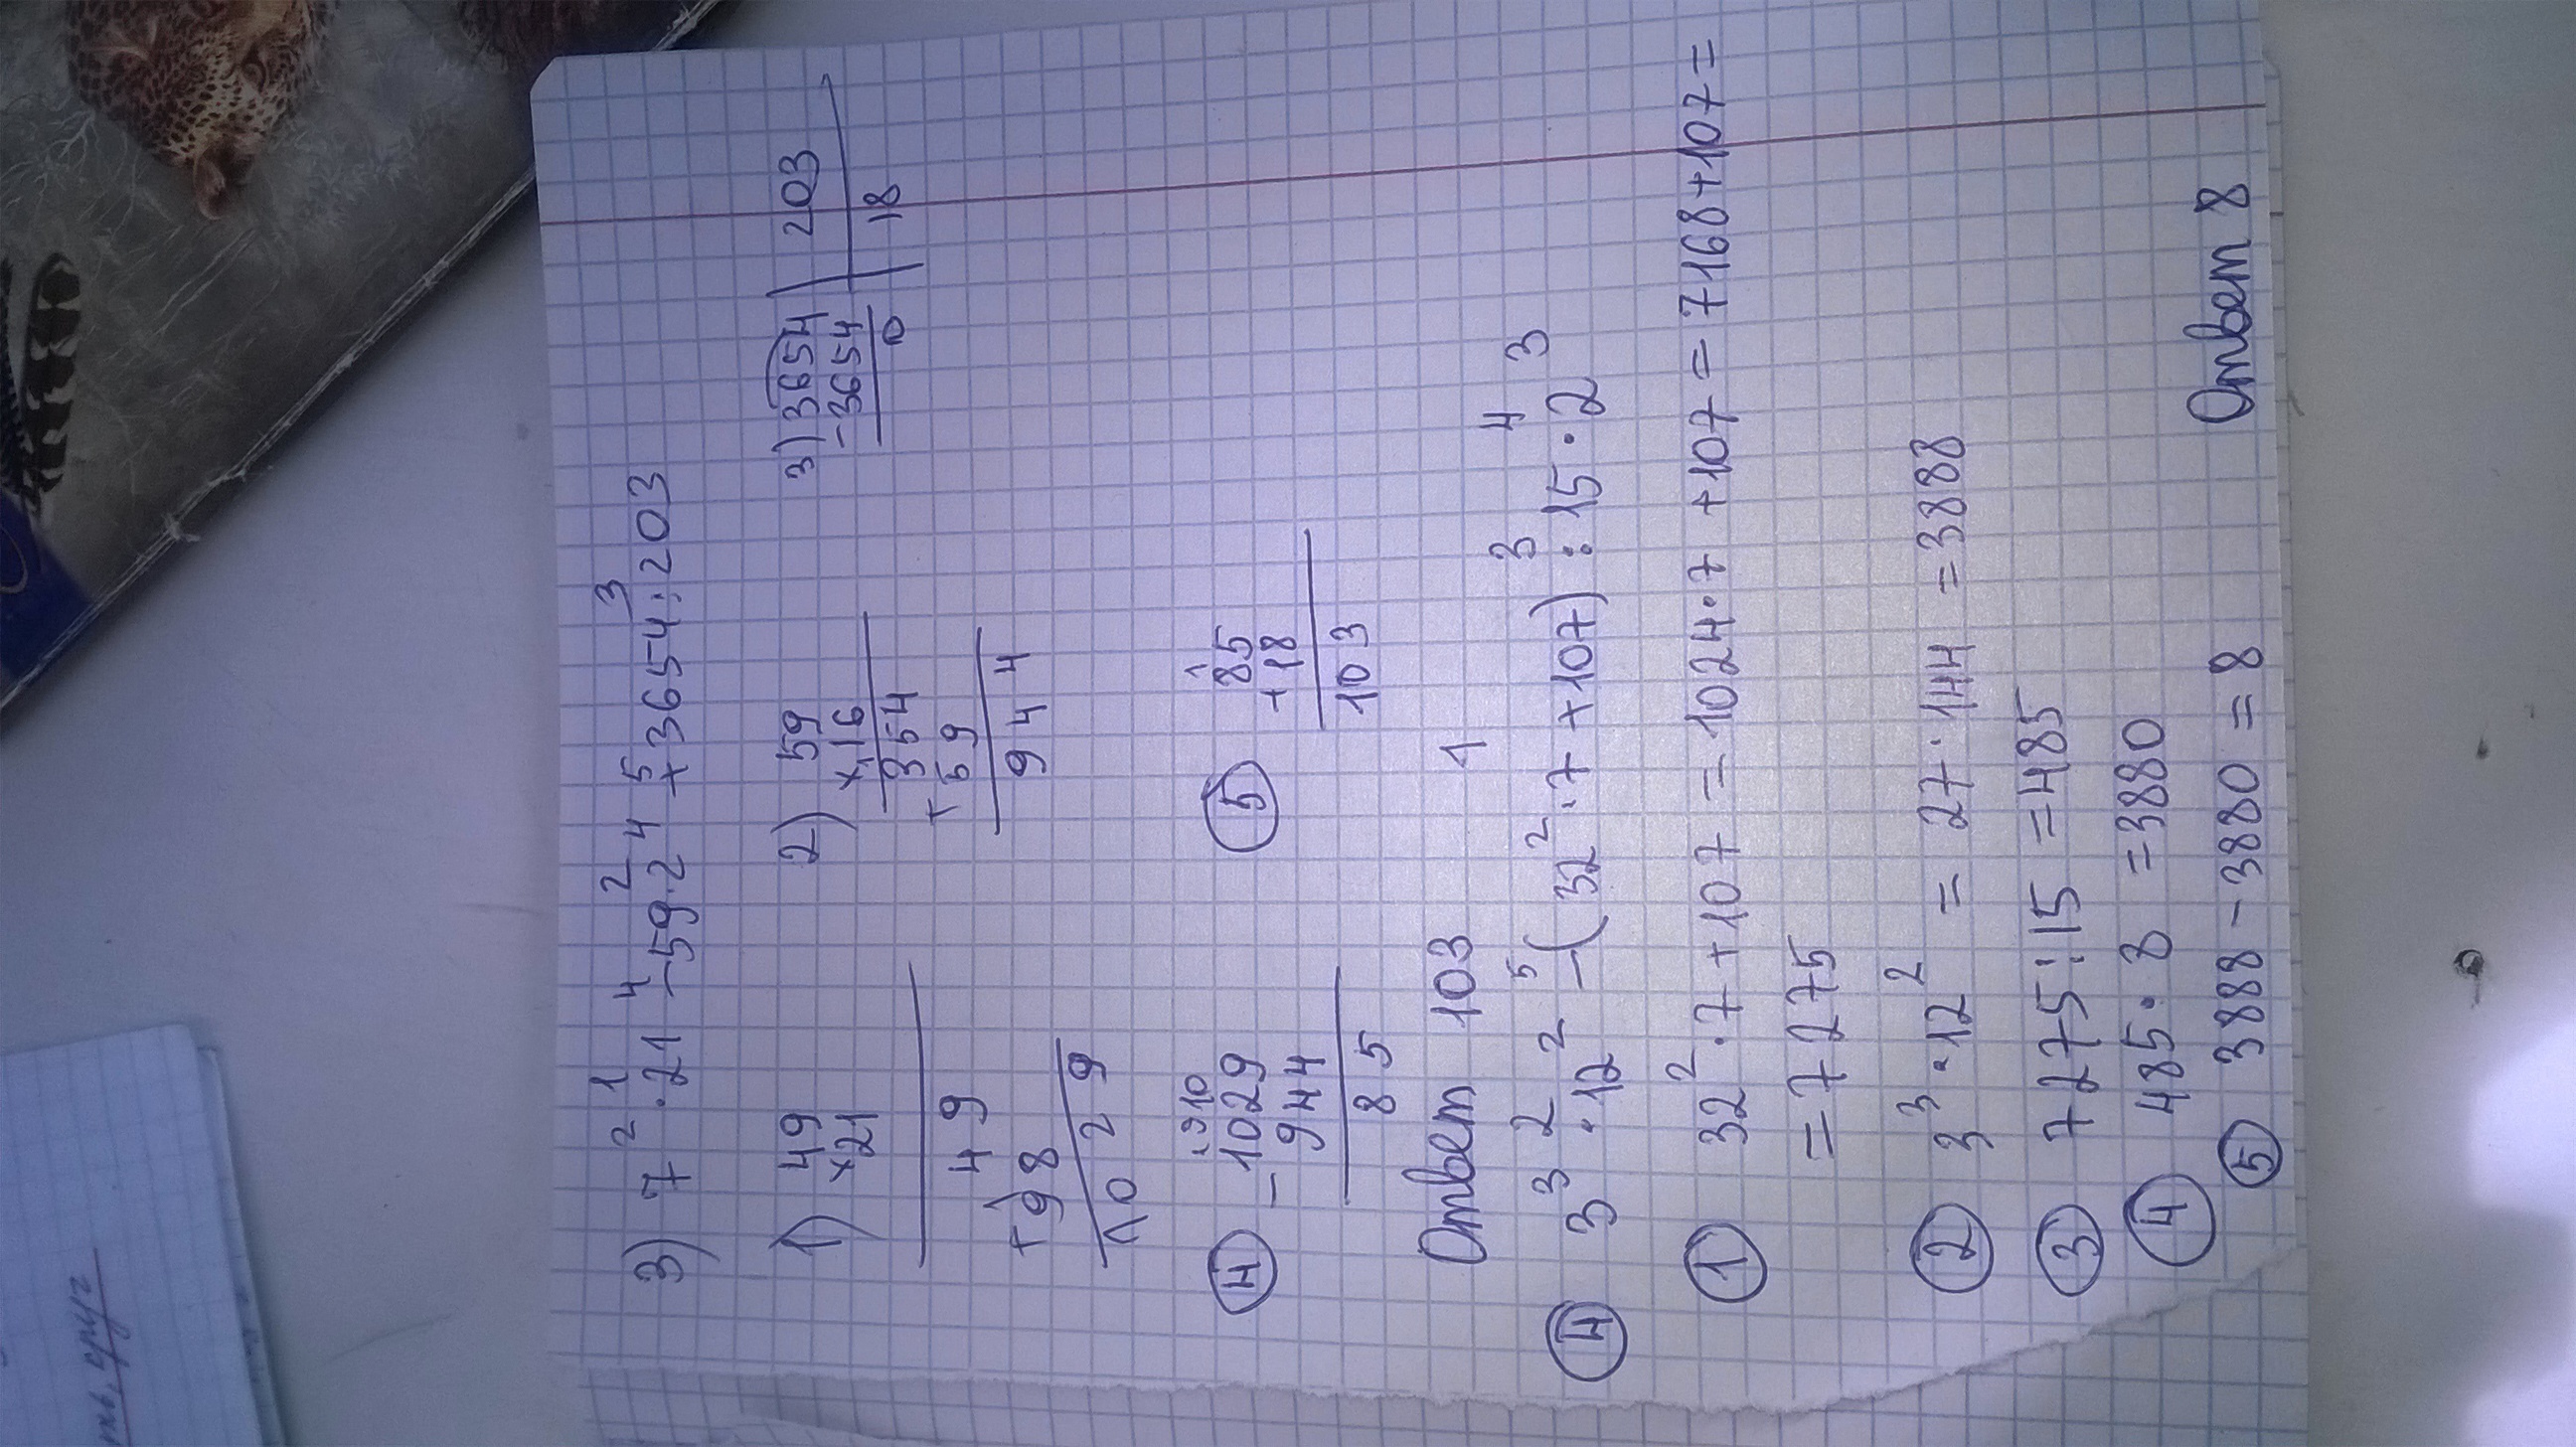 3) 7² · 21 - 59 · 2⁴ + 36 54 : 203
1 4 2 5 3
1) 49
×21
49
+98
1029
2) 59
×16
354
+59
944
3) 3654 | 203
-3654 | 18
0
④ ,910
-1029
944
85
⑤ 1
85
+18
103
Ответ 103
④ 3³ · 12² - (32² · 7 + 107) : 15 · 2³
2 5 1 3 4
① 32² · 7 + 107 = 1024 · 7 + 107 = 7168 + 107 =
= 7275
② 3³ · 12² = 27 · 144 = 3888
③ 7275 : 15 = 485
④ 485 · 8 = 3880
⑤ 3888 - 3880 = 8
Ответ 8